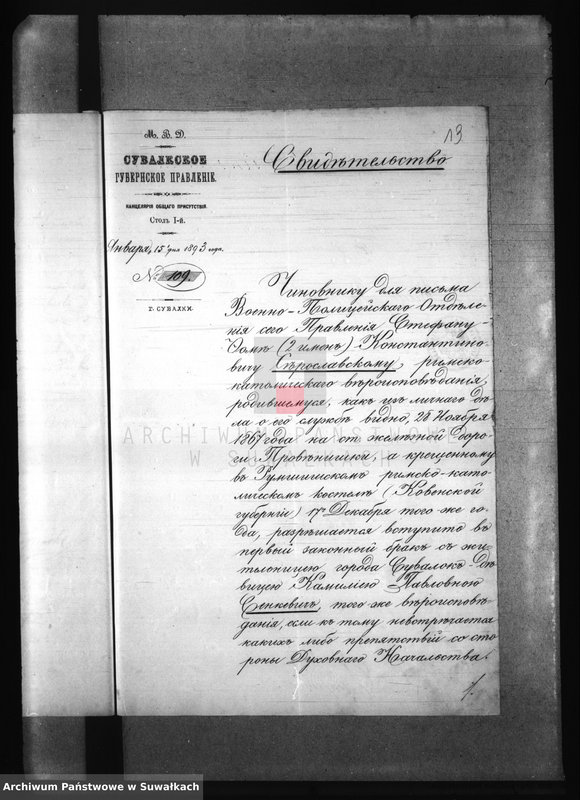 13
М. В. Д.
СУВАЛКСКОЕ
ГУБЕРНСКОЕ ПРАВЛЕНІЕ.
КАНЦЕЛЯРІЯ ОБЩАГО ПРИСУТСТВІЯ
Столъ I-й.
Января, 15 дня 1893 года.
№ 109.
Г. СУВАЛКИ.
Свидѣтельство
Чиновнику для письма
Военно-Полицейскаго Отдѣле-
нія сего Правленія Стефану-
Ѳомѣ (2 именъ) Константино-
вичу Сѣрославскому, римско-
католическаго вѣроисповѣданія,
родившемуся, какъ изъ личнаго дѣ-
ла о его службѣ видно, 28 Ноября
1867 года на ст. желѣзной доро-
ги Провѣнишки, а крещенному
въ Румшишскомъ римско-като-
лическомъ костелѣ (Ковенской
губерніи) 17 Декабря того же го-
да, разрѣшается вступить въ
первый законный бракъ съ жи-
тельницею города Сувалокъ дѣ-
вицею Камиліею Павловною
Сенкевичъ, того же вѣроисповѣ-
данія, если къ тому невстрѣчается
какихъ либо препятствій со сто-
роны Духовнаго Начальства.
ARCHIWUM PAŃSTWOWE
W SUWAŁKACH
Archiwum Państwowe w Suwałkach